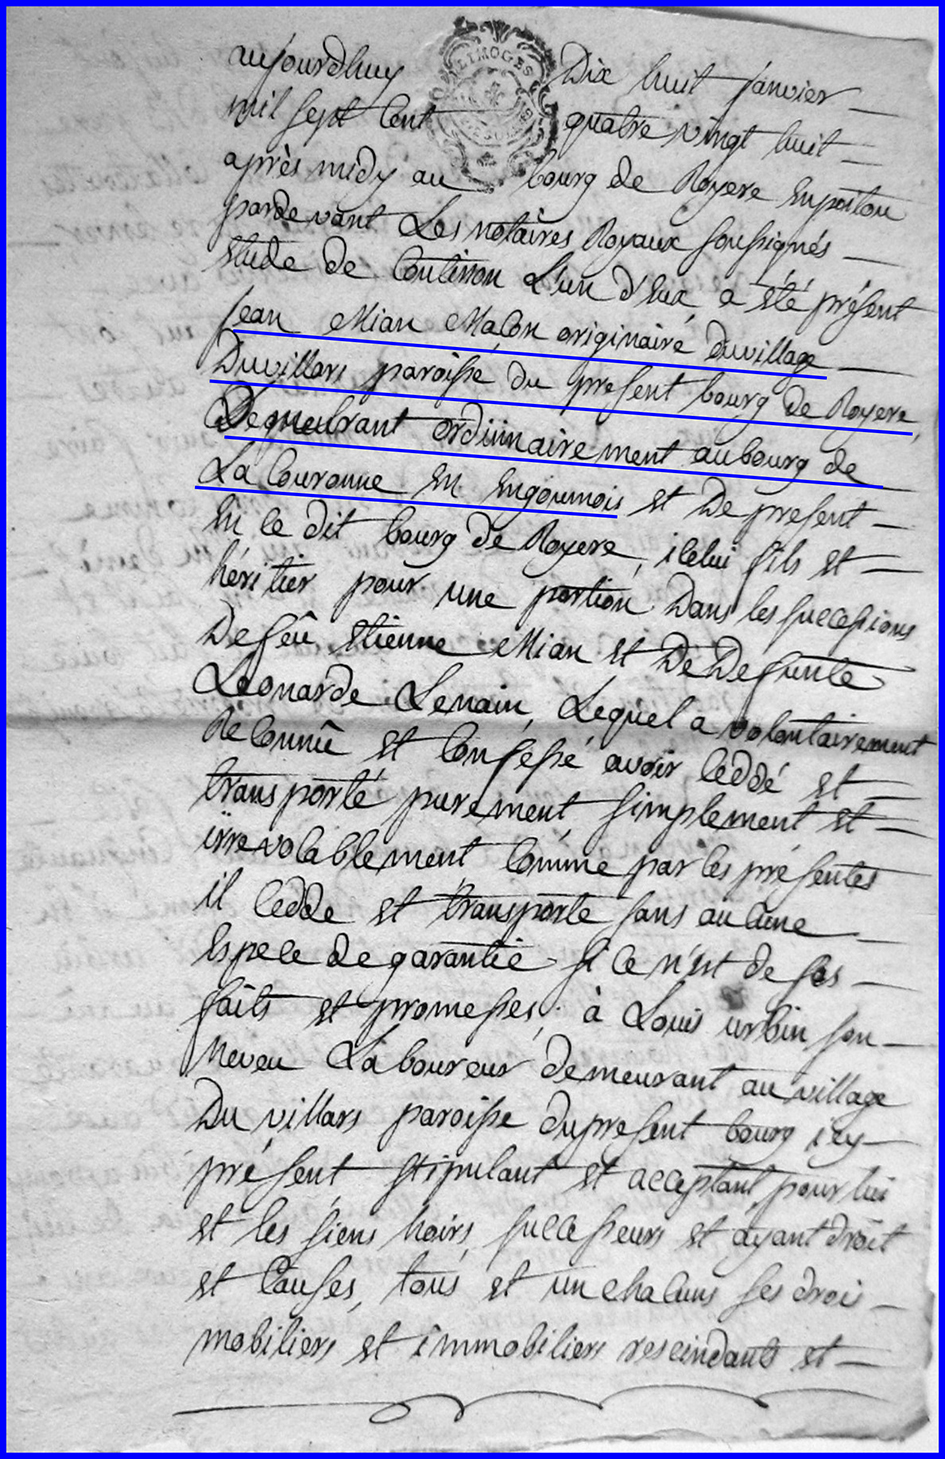 aujourdhuy Dix huit janvier
mil sept cent quatre vingt huit
après midy au bourg de Royere en poitou
pardevant Les notaires Royaux soussignés
Etude de Coutisson L'un d'Eux, a été présent
Jean Mian Maçon originaire du village
Du villars paroisse du present bourg de Royere,
Demeurant ordinnairement au bourg de
La Couronne En Engoumois et De present
En le dit bourg de Royere, icelui fils et
héritier pour une portion Dans les successions
De feû Etienne Mian et De Defunte
Léonarde Lenain, Lequel a volontairement
Reconnû et Confessé avoir ceddé et
transporté purement simplement et
irrevocablement comme par les présentes
il cedde et transporte sans aucune
Espece de garantie si ce n'est de ses
faits et promesses, à Louis urbin son
Neveu Laboureur demeurant au village
Du villars paroisse du present bourg icy
présent stipulant et acceptant pour lui
et les siens hoirs, successeurs et ayant droit
et Causes, tous et un chacuns ses drois
mobiliers et immobiliers rescindants et
LIMOGES